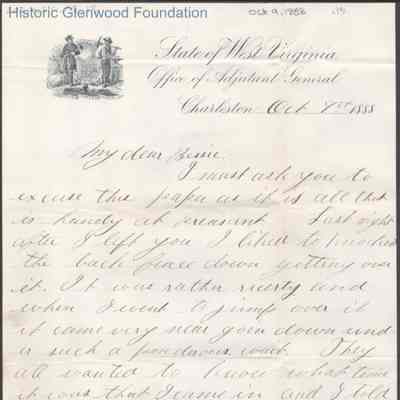 Historic Glenwood Foundation
Oct 9, 1888
State of West Virginia,
Office of Adjutant General
Charleston Oct 9th 1888
My dear Bessie
I must ask you to
excuse this papa as it is all that
is handy at preasant Last night
after I left you I liked to knocked
the back fence down getting over
it. It was rather rickety and
when I went to jump over it
it came very near goin down und
er such a ponderous weight. They
all wanted to know what time
it was that I came in and I told